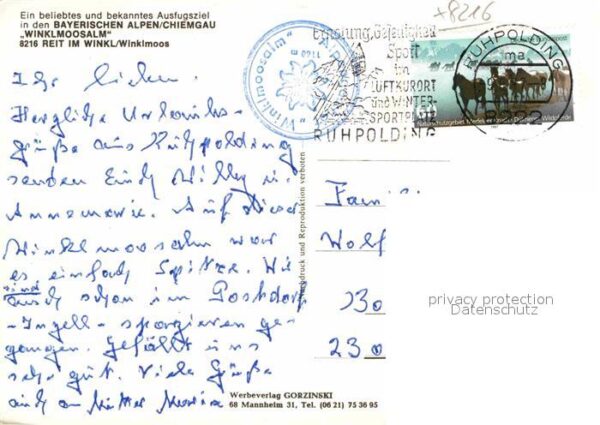 Ein beliebtes und bekanntes Ausfugsziel
in den BAYERISCHEN ALPEN/CHIEMGAU
„WINKLMOOSALM"
8216 REIT IM WINKL/Winklmoos
8216
„Winklmoosalm"
1160 m
Erholung, Geselligkeit
Sport
im
LUFTKURORT
und WINTER-
SPORTPLATZ
RUHPOLDING
RUHPOLDING
Ihr lieben.
Herzliche Urlaubs-
grüße aus Ruhpolding
senden Euch Willy u.
Annemarie. Auf dieser
Winklmoosalm war
es einfach Spitze. Wir
sind
auch schon im
spazieren ge-
gangen. Gefällt uns
sehr gut. Viele Grüße
auch an Mutter
Fam.
Wolf
230
Nachdruck und Reproduktion verboten
privacy protection
Datenschutz
Werbeverlag GORZINSKI
68 Mannheim 31, Tel. (06 21) 75 36 95